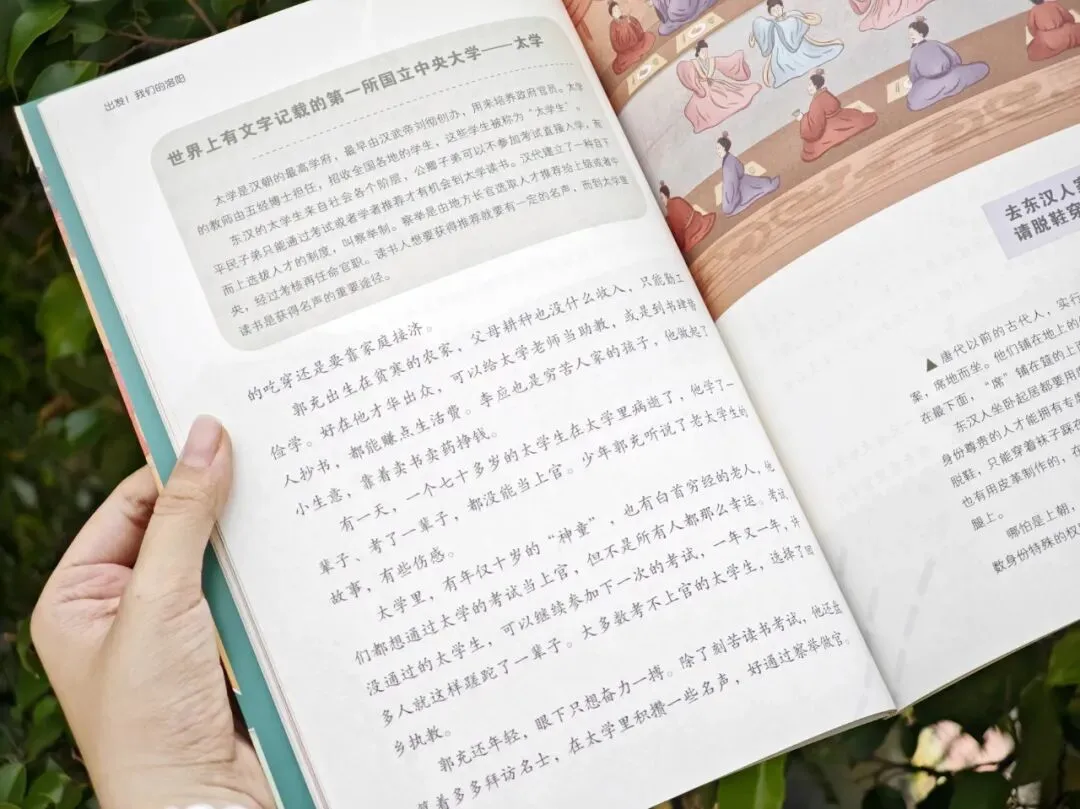 出发！我们的洛阳
世界上有文字记载的第一所国立中央大学——太学
太学是汉朝的最高学府，最早由汉武帝刘彻创办，用来培养政府官员。太学
的教师由五经博士担任，招收全国各地的学生，这些学生被称为“太学生”。
东汉的太学生来自社会各个阶层，公卿子弟可以不参加考试直接入学，而
平民子弟只能通过考试或者学者推荐才有机会到太学读书。汉代建立了一种自下
而上选拔人才的制度，叫察举制。察举是由地方长官选取人才推荐给上级或者中
央，经过考核再任命官职。读书人想要获得推荐就要有一定的名声，而到太学里
读书是获得名声的重要途径。
的吃穿还是要靠家庭接济。
郭充出生在贫寒的农家，父母耕种也没什么收入，只能勤工
俭学。好在他才华出众，可以给太学老师当助教，或是到书肆替
人抄书，都能赚点生活费。李应也是穷苦人家的孩子，他做起了
小生意，靠着卖书卖药挣钱。
有一天，一个七十多岁的太学生在太学里病逝了，他学了一
辈子、考了一辈子，都没能当上官。少年郭充听说了老太学生的
故事，有些伤感。
太学里，有年仅十岁的“神童”，也有白首穷经的老人，他
们都想通过太学的考试当上官，但不是所有人都那么幸运。考试
没通过的太学生，可以继续参加下一次的考试，一年又一年，许
多人就这样蹉跎了一辈子。大多数考不上官的太学生，选择了回
乡执教。
郭充还年轻，眼下只想奋力一搏。除了刻苦读书考试，他还盘
算着多多拜访名士，在太学里积攒一些名声，好通过察举做官。
去东汉人家
请脱鞋穿
▲唐代以前的古代人，实行
案，席地而坐。他们铺在地上的
在最下面，“席”铺在筵的上面
东汉人坐卧起居都要用
身份尊贵的人才能拥有专
脱鞋，只能穿着袜子踩在
也有用皮革制作的，在
腿上。
哪怕是上朝，
数身份特殊的权